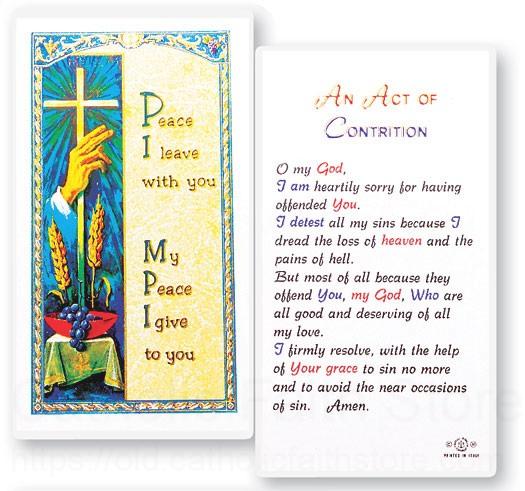 Peace
I leave
with you
My
Peace
I give
to you
An Act of
Contrition
O my God,
I am heartily sorry for having
offended You.
I detest all my sins because I
dread the loss of heaven and the
pains of hell.
But most of all because they
offend You, my God, Who are
all good and deserving of all
my love.
I firmly resolve, with the help
of Your grace to sin no more
and to avoid the near occasions
of sin. Amen.
PRINTED IN ITALY